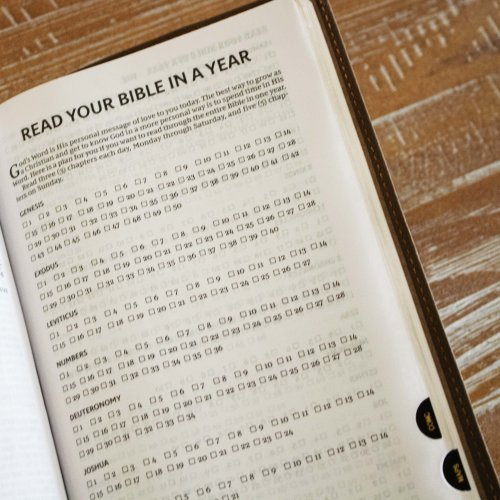 READ YOUR BIBLE IN A YEAR
God's Word is His personal message of love to you today. The best way to grow as
a Christian and get to know God in a more personal way is to spend time in His
Word. Here is a plan for you if you want to read through the entire Bible in one year.
Read three (3) chapters each day, Monday through Saturday, and five (5) chap-
ters on Sunday.
GENESIS
□1 □2 □3 □4 □5 □6 □7 □8 □9 □10 □11 □12 □13 □14
□15 □16 □17 □18 □19 □20 □21 □22 □23 □24 □25 □26 □27 □28
□29 □30 □31 □32 □33 □34 □35 □36 □37 □38 □39 □40 □41 □42
□43 □44 □45 □46 □47 □48 □49 □50
EXODUS
□1 □2 □3 □4 □5 □6 □7 □8 □9 □10 □11 □12 □13 □14
□15 □16 □17 □18 □19 □20 □21 □22 □23 □24 □25 □26 □27 □28
□29 □30 □31 □32 □33 □34 □35 □36 □37 □38 □39 □40
LEVITICUS
□1 □2 □3 □4 □5 □6 □7 □8 □9 □10 □11 □12 □13 □14
□15 □16 □17 □18 □19 □20 □21 □22 □23 □24 □25 □26 □27
NUMBERS
□1 □2 □3 □4 □5 □6 □7 □8 □9 □10 □11 □12 □13 □14
□15 □16 □17 □18 □19 □20 □21 □22 □23 □24 □25 □26 □27 □28
□29 □30 □31 □32 □33 □34 □35 □36
DEUTERONOMY
□1 □2 □3 □4 □5 □6 □7 □8 □9 □10 □11 □12 □13 □14
□15 □16 □17 □18 □19 □20 □21 □22 □23 □24 □25 □26 □27 □28
□29 □30 □31 □32 □33 □34
JOSHUA
□1 □2 □3 □4 □5 □6 □7 □8 □9 □10 □11 □12 □13 □14
□15 □16 □17 □18 □19 □20 □21 □22 □23 □24
□5 □6 □7 □8 □9 □10 □11 □12 □13 □14
□21
CONC
MAPS